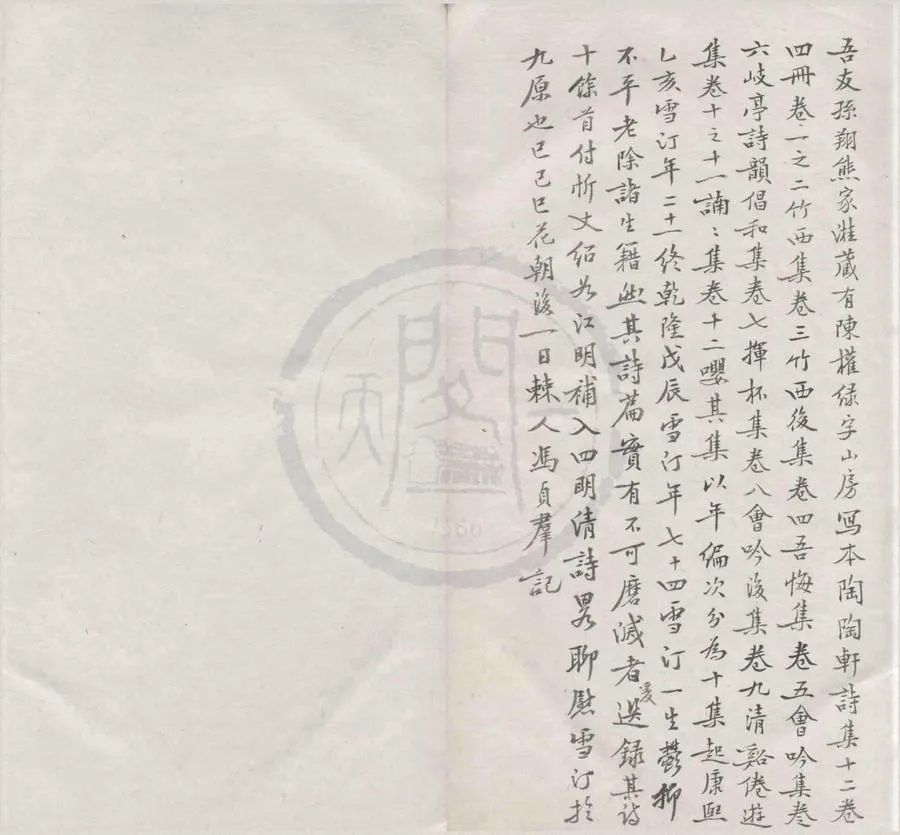 吾友孫翔熊家溎藏有陳權綠字山房寫本陶陶軒詩集十二卷
四冊卷一之二竹西集卷三竹西後集卷四吾悔集卷五會吟集卷
六岐亭詩韻倡和集卷七揮杯集卷八會吟後集卷九清谿倦遊
集卷十之十一諵〻集卷十二嚶其集以年編次分為十集起康熙
乙亥雪汀年二十一終乾隆戊辰雪汀年七十四雪汀一生鬱抑
不平老除諸生籍然其詩篇實有不可磨滅者爰選錄其詩
十餘首付忻丈紹如江明補入四明清詩畧聊慰雪汀於
九原也已己巳花朝後一日棘人馮貞羣記
1566